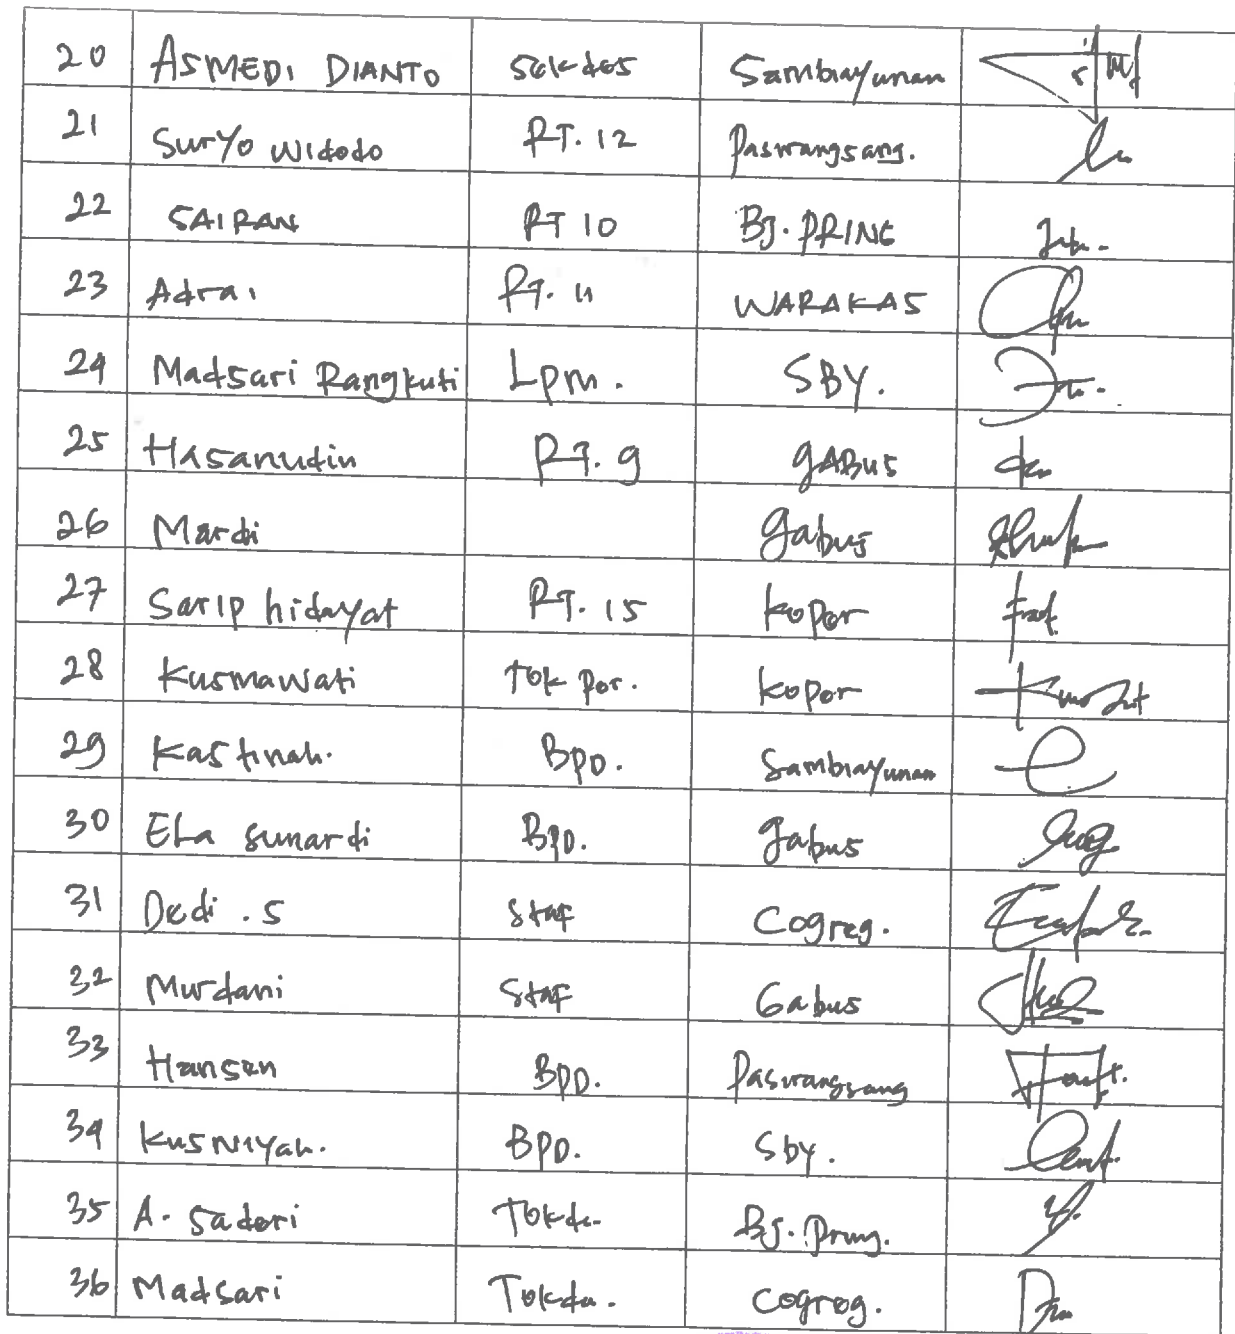 20 ASMEDI DIANTO Sekdes Sambirayunan
21 Suryo Widodo RT. 12 Paswrangsang.
22 SAIRAN RT 10 BJ. PRING
23 Adrai RT. 11 WARAKAS
24 Madsari Rangkuti Lpm. SBY.
25 Hasanudin RT. 9 GABUS
26 Mardi Gabus
27 Sarip hidayat RT. 15 kopor
28 Kusmawati Tok por. kopor
29 Kastinah. BPD. Sambirayunan
30 ELa Sunardi BPD. Gabus
31 Dedi . S Staf Cogreg.
32 Murdani Staf Gabus
33 Hansen BPD. Paswrangsang
34 Kusniyah. BPD. Sby.
35 A. Sadori Tokda. BJ. Pring.
36 Madsari Tokda. Cogreg.